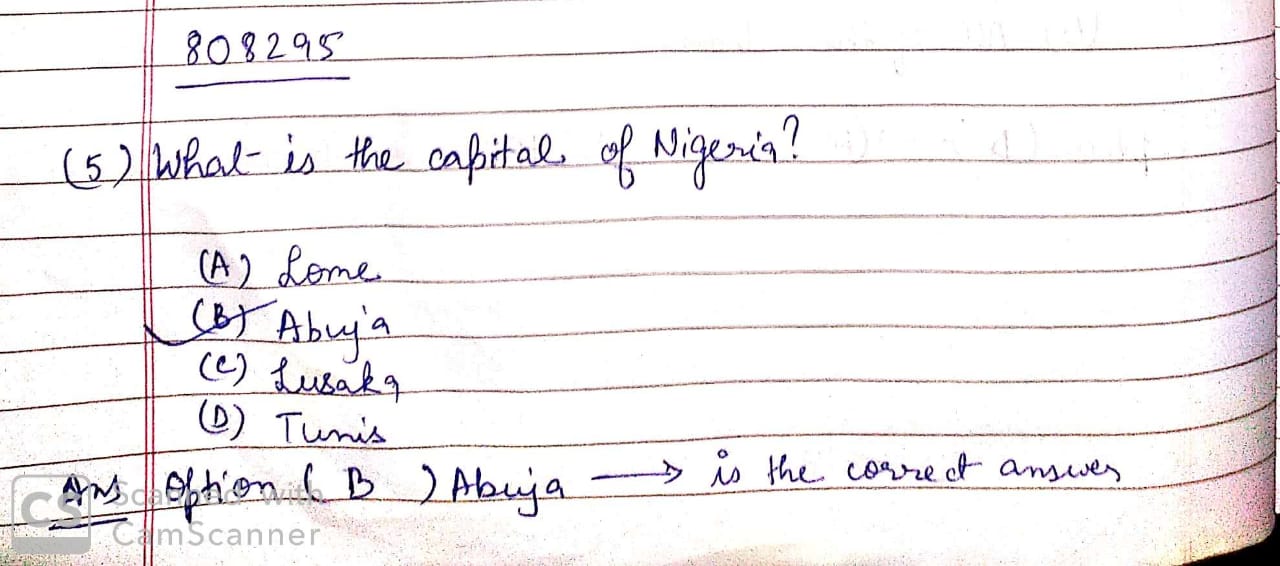 808295
(5) What is the capital of Nigeria?
(A) Lome
(B) Abuja
(C) Lusaka
(D) Tunis
Ans Option ( B ) Abuja → is the correct answer
CS Scanned with
CamScanner